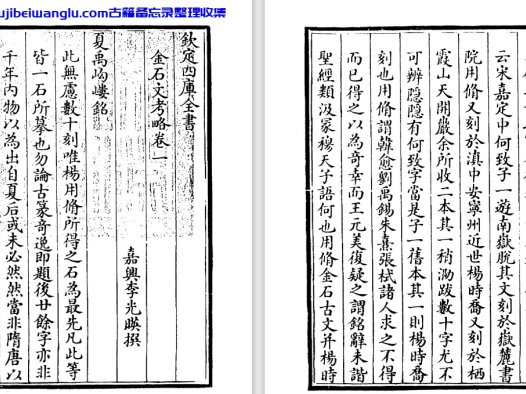 ujibeiwanglu.com古籍备忘录整理收集
欽定四庫全書
金石文考略卷一
嘉興李光暎撰
夏禹岣嶁銘
此無慮數十刻唯楊用脩所得之石為最先凡此等
皆一石所摹也勿論古篆奇逸即題後廿餘字亦非
千年內物以為出自夏后或未必然然當非隋唐以
云宋嘉定中何致子一遊南嶽脫其文刻於嶽麓書
院用脩又刻於滇中安寧州近世楊時喬又刻於栖
霞山天開巖余所收二本其一稍泐跋數十字尤不
可辨隱隱有何致字當是子一舊本其一則楊時喬
刻也用脩謂韓愈劉禹錫朱熹張栻諸人求之不得
而已得之以為奇幸而王元美復疑之謂銘辭未諧
聖經類汲冢穆天子語何也用脩金石古文并楊時